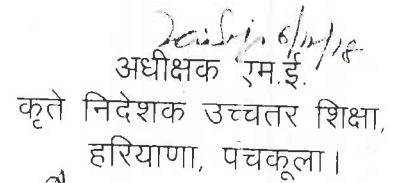 6/12/18
अधीक्षक एम.ई.
कृते निदेशक उच्चतर शिक्षा,
हरियाणा, पंचकूला।